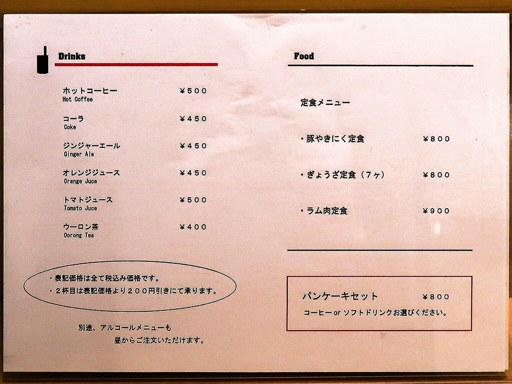 Drinks
ホットコーヒー ￥５００
Hot Coffee
コーラ ￥４５０
Coke
ジンジャーエール ￥４５０
Ginger Ale
オレンジジュース ￥４５０
Orange Juce
トマトジュース ￥５００
Tomato Juce
ウーロン茶 ￥４００
Oorong Tea
・表記価格は全て税込み価格です。
・２杯目は表記価格より２００円引きにて承ります。
別途、アルコールメニューも
昼からご注文いただけます。
Food
定食メニュー
・豚やきにく定食 ￥８００
・ぎょうざ定食（７ヶ） ￥８００
・ラム肉定食 ￥９００
パンケーキセット ￥８００
コーヒー or ソフトドリンクお選びください。